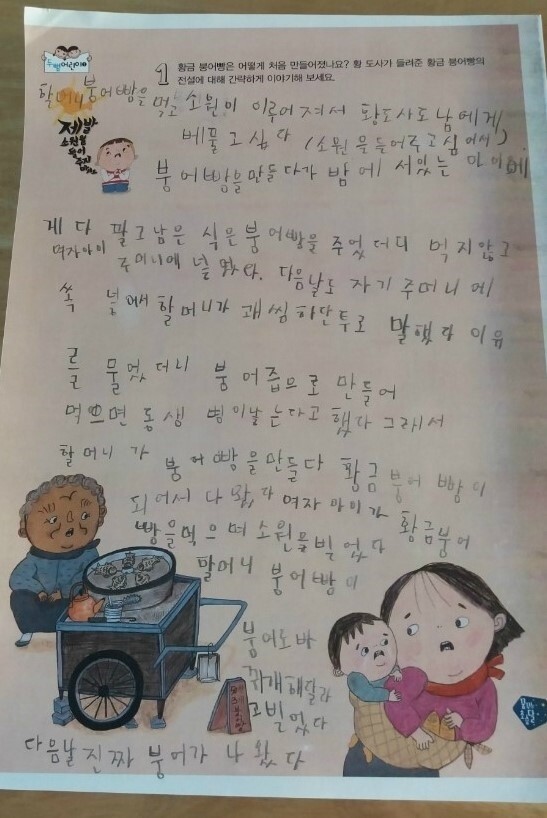 1 황금 붕어빵은 어떻게 처음 만들어졌나요? 황 도사가 들려준 황금 붕어빵의
전설에 대해 간략하게 이야기해 보세요.
할머니 붕어빵을 먹고 소원이 이루어져서 황도사도 남에게
베풀고 싶다 (소원을 들어주고 싶어서)
제발
소원을
붕어빵을 만들다가 밤에 서있는 아이에
게 다 팔고 남은 식은 붕어빵을 주었더니 먹지않고
여자아이 주머니에 넣었다. 다음날도 자기 주머니에
쏙 넣어서 할머니가 괘씸하단투로 말했다 이유
를 물었더니 붕어즙으로 만들어
먹으면 동생 병이 낳는다고 했다 그래서
할머니가 붕어빵을 만들다 황금 붕어빵이
되어서 나왔다 여자아이가 황금붕어
빵을 먹으며 소원을 빌었다
할머니 붕어빵이
붕어로 바
뀌게 해달라
고 빌었다
다음날 진짜 붕어가 나왔다